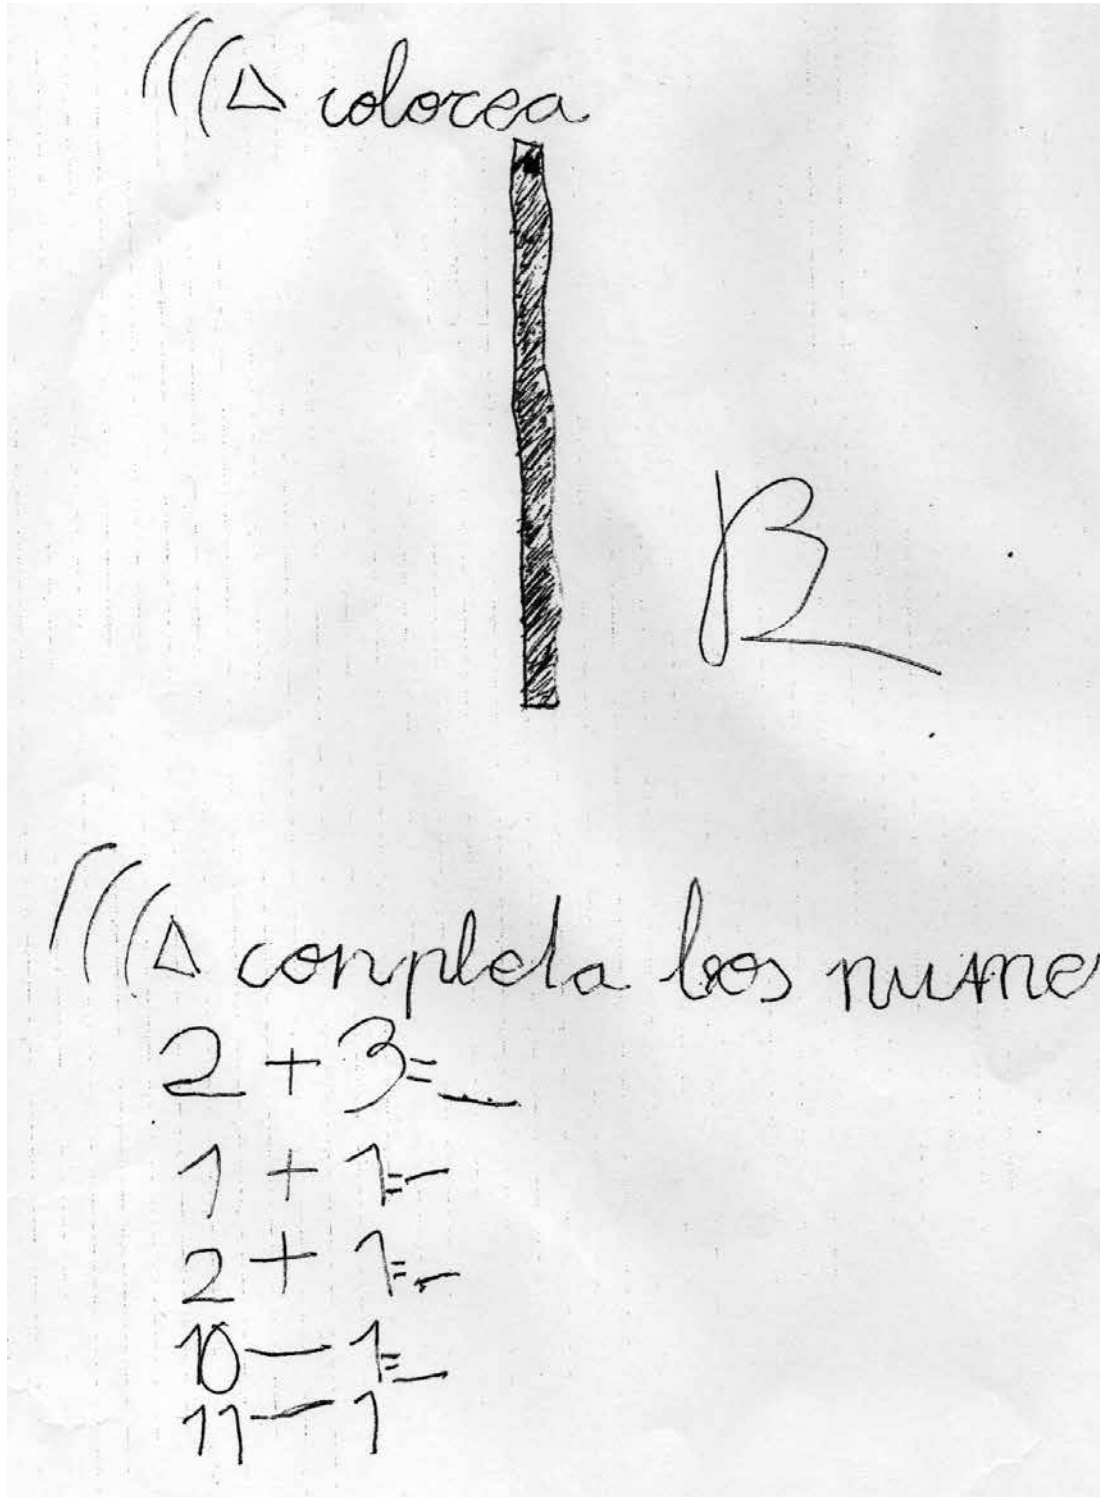 colorea
B
conpleta los nume
2 + 3=_
1 + 1=-
2 + 1=-
10 - 1=_
11 - 1